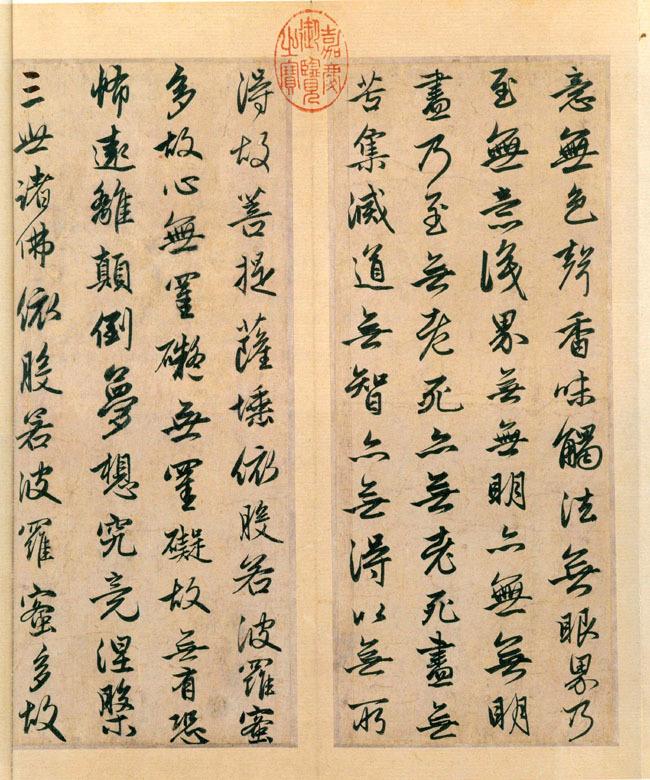 嘉慶御覽之寶
意無色聲香味觸法無眼界乃
至無意識界無無明亦無無明
盡乃至無老死亦無老死盡無
苦集滅道無智亦無得以無所
得故菩提薩埵依般若波羅蜜
多故心無罣礙無罣礙故無有恐
怖遠離顛倒夢想究竟涅槃
三世諸佛依般若波羅蜜多故